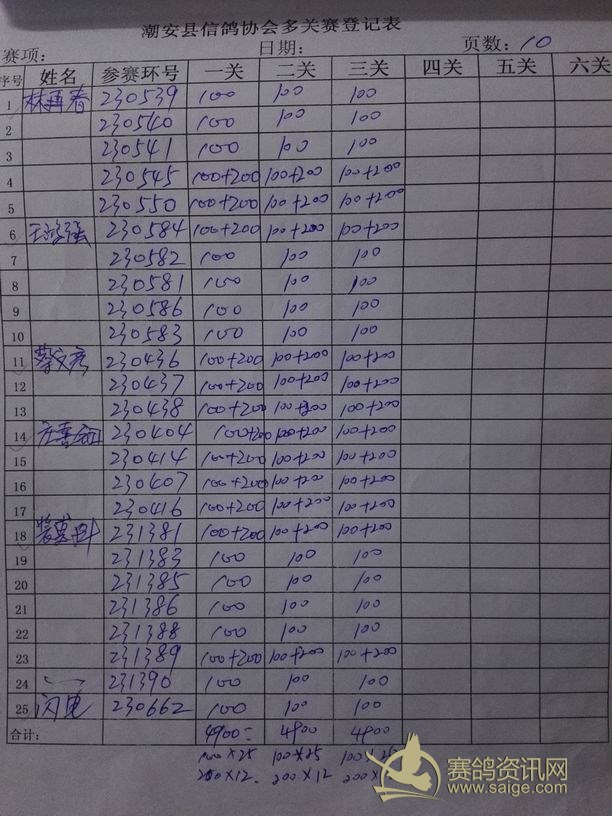 潮安县信鸽协会多关赛登记表
赛项: 日期: 页数:10
序号 姓名 参赛环号 一关 二关 三关 四关 五关 六关
1 230539 100 100 100
2 230540 100 100 100
3 230541 100 100 100
4 230545 100+200 100+200 100+200
5 230550 100+200 100+200 100+200
6 230584 100+200 100+200 100+200
7 230582 100 100 100
8 230581 100 100 100
9 230586 100 100 100
10 230583 100 100 100
11 蔡文彦 230436 100+200 100+200 100+200
12 230437 100+200 100+200 100+200
13 230438 100+200 100+200 100+200
14 230404 100+200 100+200 100+200
15 230414 100+200 100+200 100+200
16 230407 100+200 100+200 100+200
17 230416 100+200 100+200 100+200
18 231381 100+200 100+200 100+200
19 231383 100 100 100
20 231385 100 100 100
21 231386 100 100 100
22 231388 100 100 100
23 231389 100+200 100+200 100+200
24 231390 100 100 100
25 闪电 230662 100 100 100
合计: 4900- 4900 4900
100×25 100×25 100×25
200×12 200×12 200×
赛鸽资讯网
www.saige.com